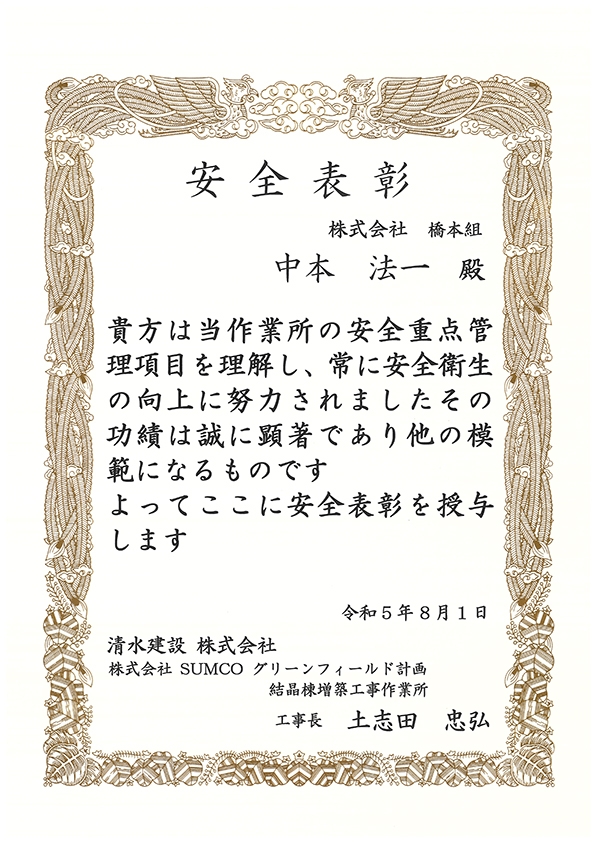 安全表彰
株式会社 橋本組
中本 法一 殿
貴方は当作業所の安全重点管
理項目を理解し、常に安全衛生
の向上に努力されましたその
功績は誠に顕著であり他の模
範になるものです
よってここに安全表彰を授与
します
令和5年8月1日
清水建設 株式会社
株式会社 SUMCO グリーンフィールド計画
結晶棟増築工事作業所
工事長 土志田 忠弘